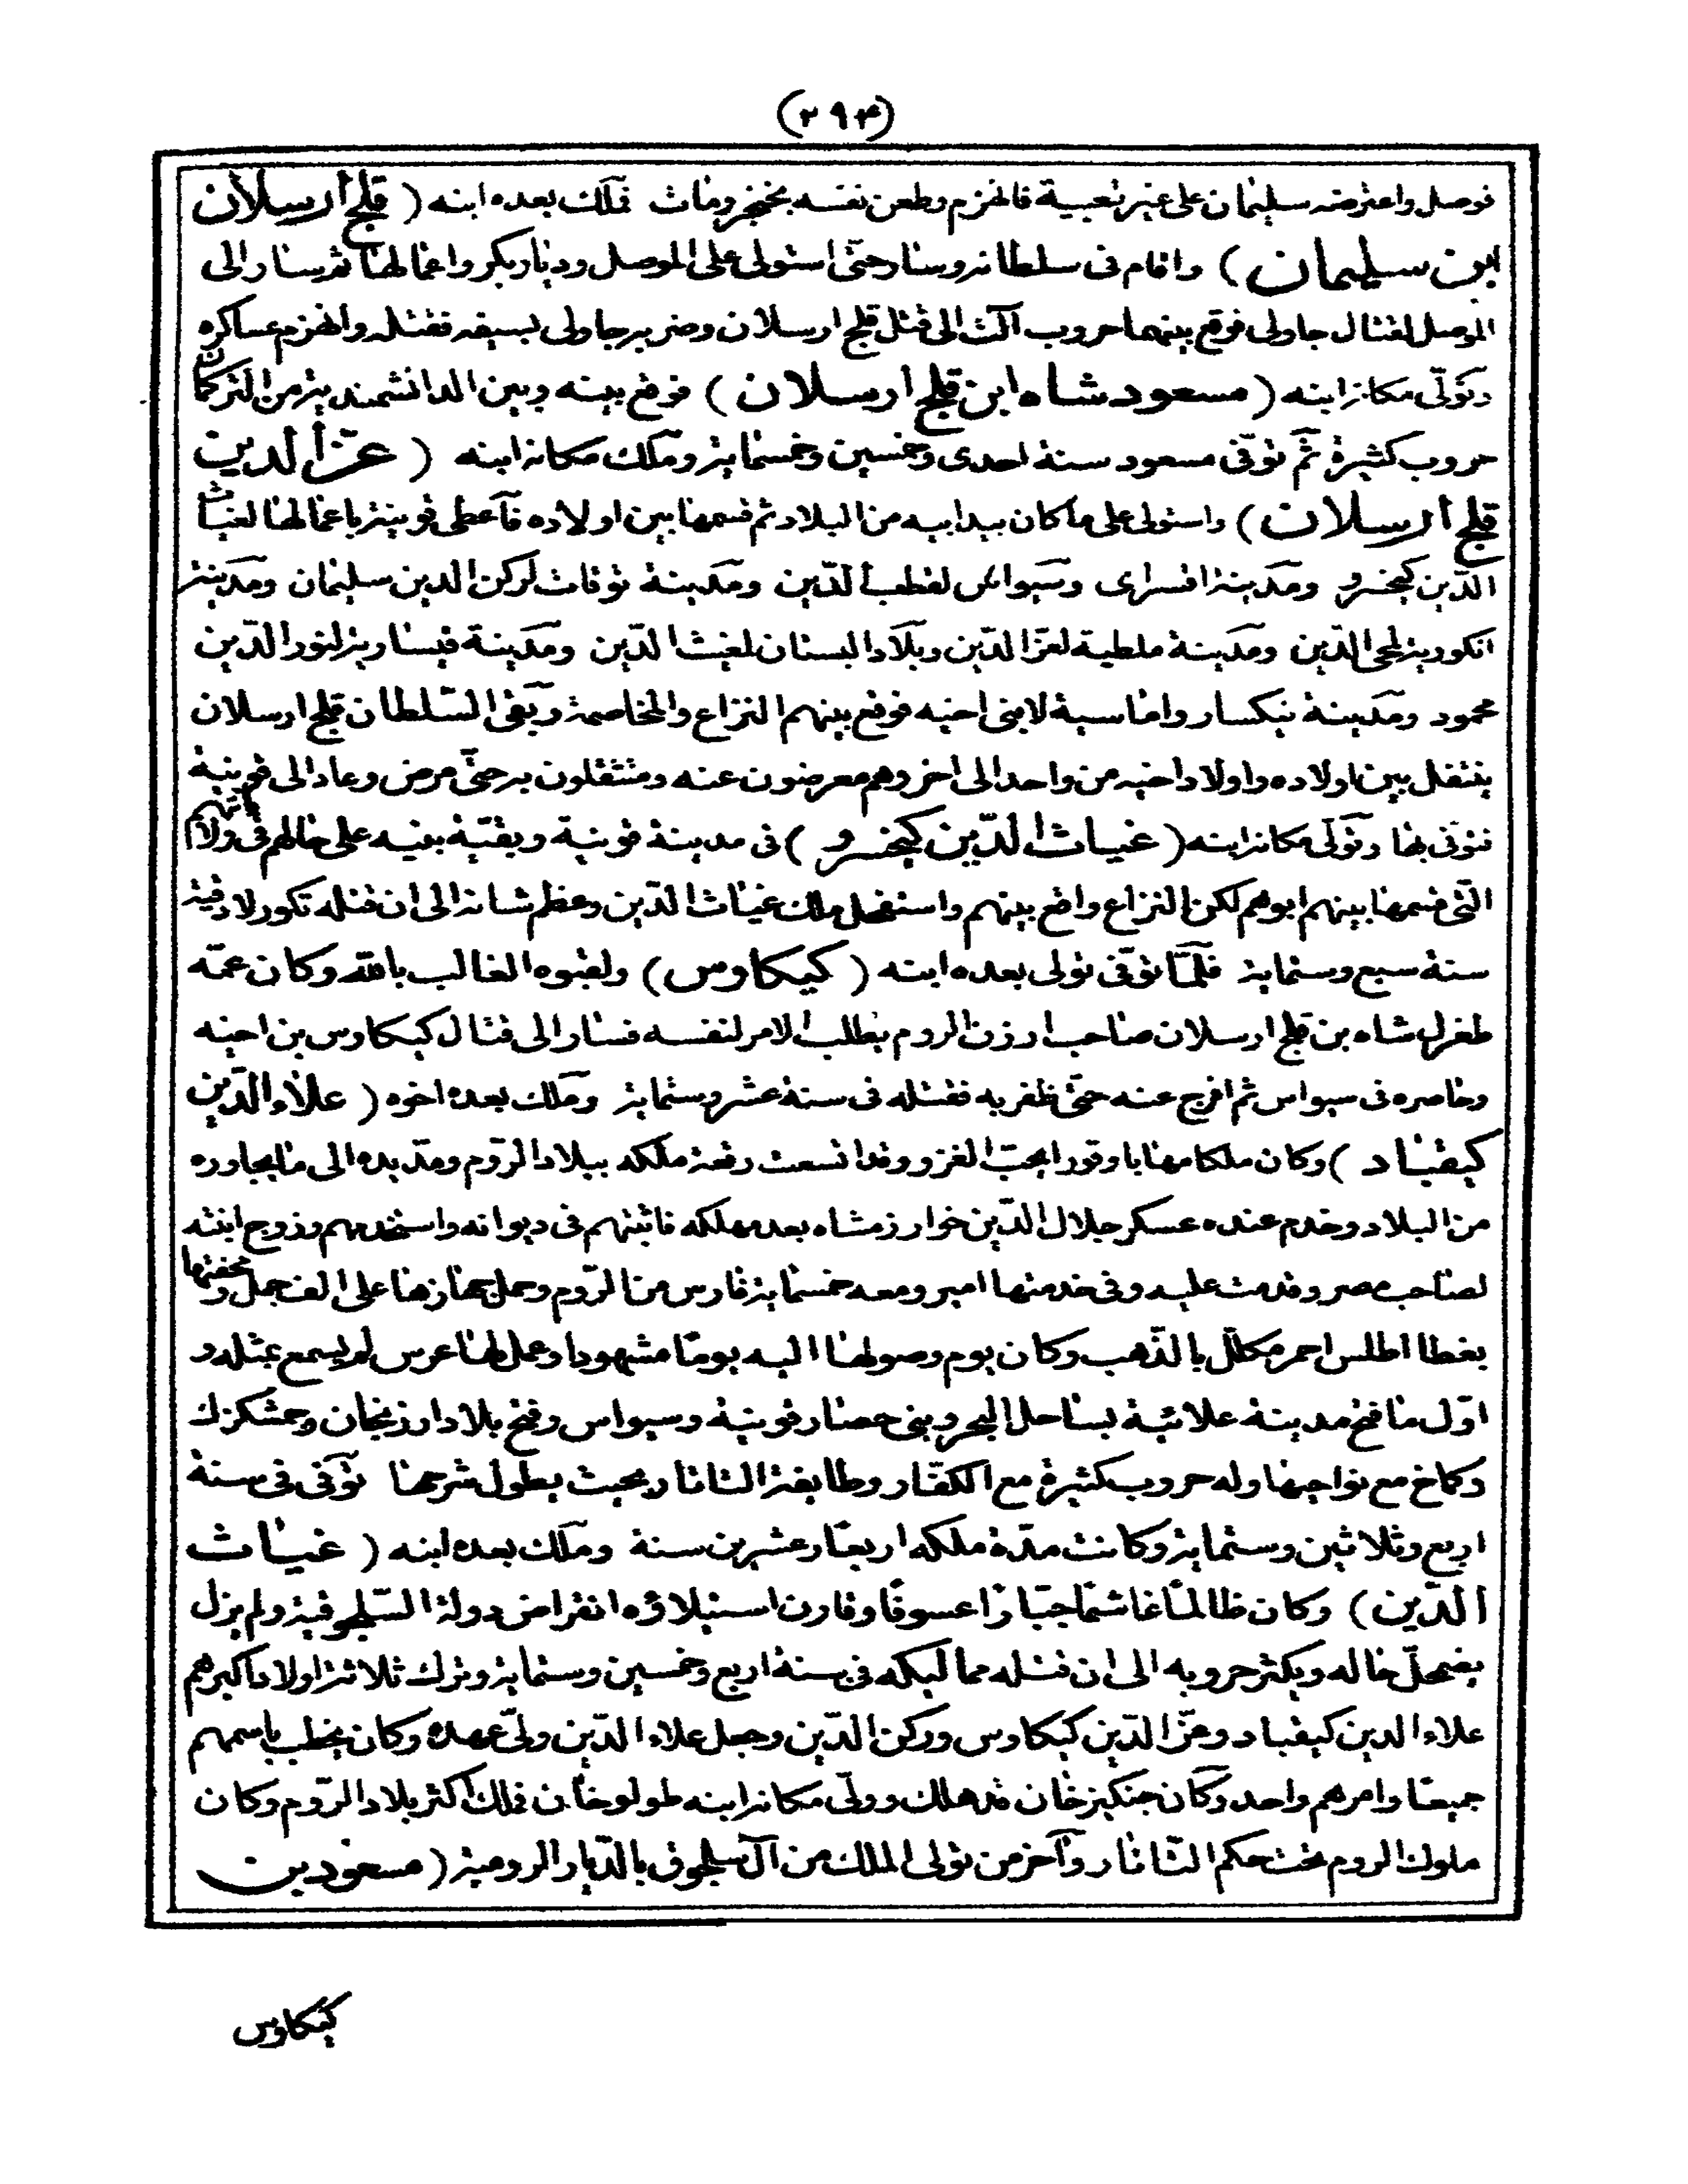 (٢٩۴)
فوصل واعترضه سليمان على غير تعبية فانهزم وطعن نفسه بخنجر ومات فملك بعده ابنه ( قلج أرسلان
ابن سليمان ) واقام فى سلطانه وسار حتى استولى على الموصل وديار بكر واعمالها ثم سار الى
الموصل لقتال جاولى فوقع بينهما حروب آلت الى قتل قلج ارسلان وضربه جاولى بسيفه فقتله وانهزم عساكره
وتولّى مكانه ابنه ( مسعود شاه ابن قلج أرسلان ) فوقع بينه وبين الدانشمنديه من التركمان
حروب كثيرة ثم توفّى مسعود سنة احدى وخمسين وخمسماية وملك مكانه ابنه ( عزّ ألدين
قلج أرسلان ) واستولى على ما كان بيد ابيه من البلاد ثم قسمها بين اولاده فاعطى قوينية باعمالها لغياث
الدّين كيخسرو ومدينة اقسراى وسيواس لقطب الدّين ومدينة توقات لركن الدين سليمان ومدينة
انكورية لمحى الدّين ومدينة ملطية لعزّ الدّين وبلاد ابلستان لغيث الدّين ومدينة قيسارية لنور الدّين
محمود ومدينة نيكسار واماسية لابنى اخيه فوقع بينهم النزاع والمخاصمة وبقى السّلطان قلج ارسلان
ينتقل بين اولاده واولاد اخيه من واحد الى اخر وهم معرضون عنه ومتثقلون به حتّى مرض وعاد الى قوينية
فتوفى بها وتولّى مكانه ابنه ( غياث الدّين كيخسرو ) فى مدينة قوينية وبقيّة بنيه على حالهم فى ولاياتهم
الّتى قسمها بينهم ابوهم لكن النزاع واقع بينهم واستفحل ملك غياث الدّين وعظم شانه الى ان قتله تكور لادقية
سنة سبع وستماية فلمّا توفّى تولى بعده ابنه ( كيكاوس ) ولقبوه الغالب بالله وكان عمّه
طغرل شاه بن قلج ارسلان صاحب ارزن الروم يطلب الامر لنفسه فسار الى قتال كيكاوس بن اخيه
وحاصره فى سيواس ثم افرج عنه حتّى ظفر به فقتله فى سنة عشر وستماية وملك بعده اخوه ( علاء الدّين
كيقباد ) وكان ملكا مهابا وقورا يحبّ الغزو وقد اتسعت رقعة ملكه ببلاد الرّوم ومدّ يده الى ما يجاوره
من البلاد وخدم عنده عسكر جلال الدّين خوارزمشاه بعد مهلكه فاثبتهم فى ديوانه واستخدمهم وزوج ابنته
لصاحب مصر وقدمت عليه وفى خدمتها امير ومعه خمسماية فارس من الرّوم وحمل جهازها على الف جمل ومحفتها
بغطا اطلس احمر مكلّل بالذّهب وكان يوم وصولها اليه يوما مشهودا وعمل لها عرس لم يسمع بمثله و
اوّل ما فتح مدينة علائية بساحل البحر وبنى حصار قوينية وسيواس وفتح بلاد ارزنجان وجمشكزك
وكماخ مع نواحيها وله حروب كثيرة مع الكفّار وطايفة التاتار بحيث يطول شرحها توفّى فى سنة
اربع وثلاثين وستماية وكانت مدّة ملكه اربعا وعشرين سنة وملك بعده ابنه ( غياث
الدّين ) وكان ظالما غاشما جبّارا عسوفا وقارن استيلاؤه انقراض دولة السّلجوقية ولم يزل
يضمحلّ حاله ويكثر حروبه الى ان قتله مماليكه فى سنة اربع وخمسين وستماية وترك ثلاثة اولاد اكبرهم
علاء الدين كيقباد وعزّ الدّين كيكاوس وركن الدّين وجعل علاء الدّين ولىّ عهده وكان يخطب باسمهم
جميعا وامرهم واحد وكان جنكيز خان قد هلك وولّى مكانه ابنه طولوخان فملك اكثر بلاد الرّوم وكان
ملوك الروم تحت حكم التاتار وآخر من تولى الملك من آل سلجوق بالدّيار الرومية ( مسعود بن
كيكاوس